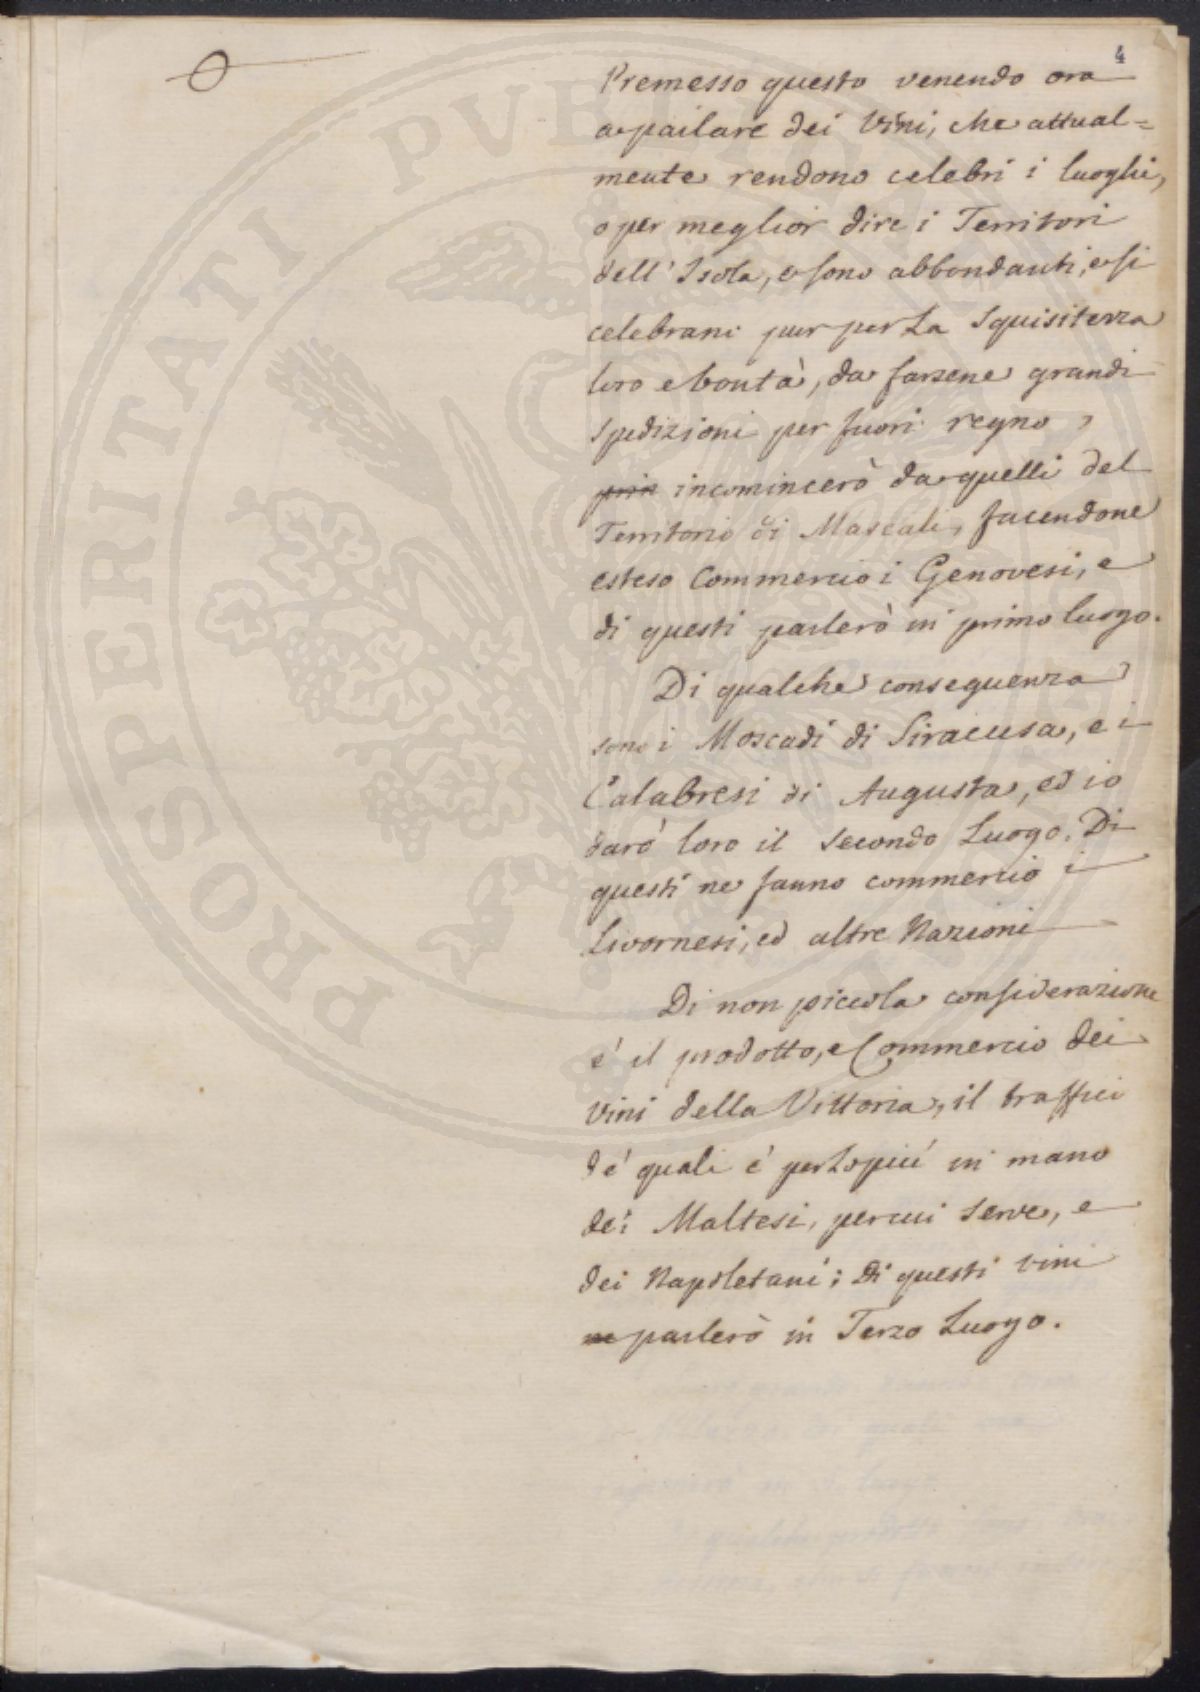 4
Premesso questo venendo ora
a parlare dei Vini, che attual=
mente rendono celebri i luoghi,
o per meglior dire i Territori
dell' Isola, e sono abbondanti, e si
celebrani pur per La Squisitezza
loro e bontà, da farsene grandi
Spedizioni per fuori regno,
prin incomincerò da quelli del
Territorio di Mascali, facendone
esteso Commercio i Genovesi, e
di questi parlerò in primo luogo.
Di qualche conseguenza
sono i Moscadi di Siracusa, e i
Calabresi di Augusta, ed io
darò loro il Secondo Luogo. Di
questi ne fanno commercio i
Livornesi, ed altre Nazioni
Di non piccola considerazione
e' il prodotto, e Commercio dei
vini della Vittoria, il traffici
de' quali e' per Lo piu' in mano
de'i Maltesi, per cui serve, e
dei Napoletani; Di questi vini
ne parlerò in Terzo Luogo.
PROSPERITATI PUBLICAE